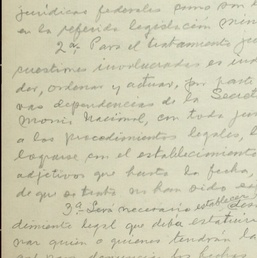 jurídicas federales como son l
en la referida legislación mine
2a. Para el tratamiento ju
cuestiones involucradas es ind
der, ordenar y actuar, por parte
ras dependencias de la Secret
monio Nacional, con todo
a los procedimientos legales, l
lograrse con el establecimiento
adjetivos que hasta la fecha,
de que se trata no han sido
3a. Será necesario establecer
dimento legal que deba
nar quién o quienes tendrán la